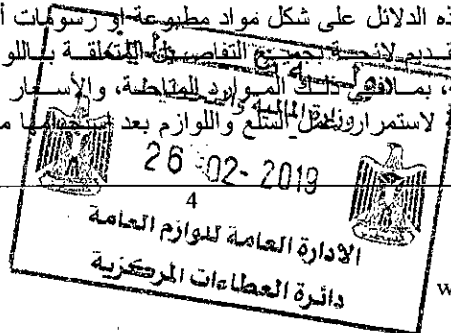 ذه الدلائل على شكل مواد مطبوعة او رسومات أ
قديم لائحة بجميع التفاصيل المتعلقة باللو
، بما في ذلك الموارد المناطة، والأسعار
ة لاستمرار عمل السلع واللوازم بعد استخدامها م
وزارة المالية و
26-02-2019
4
الادارة العامة للوازم العامة
دائرة العطاءات المركزية
w